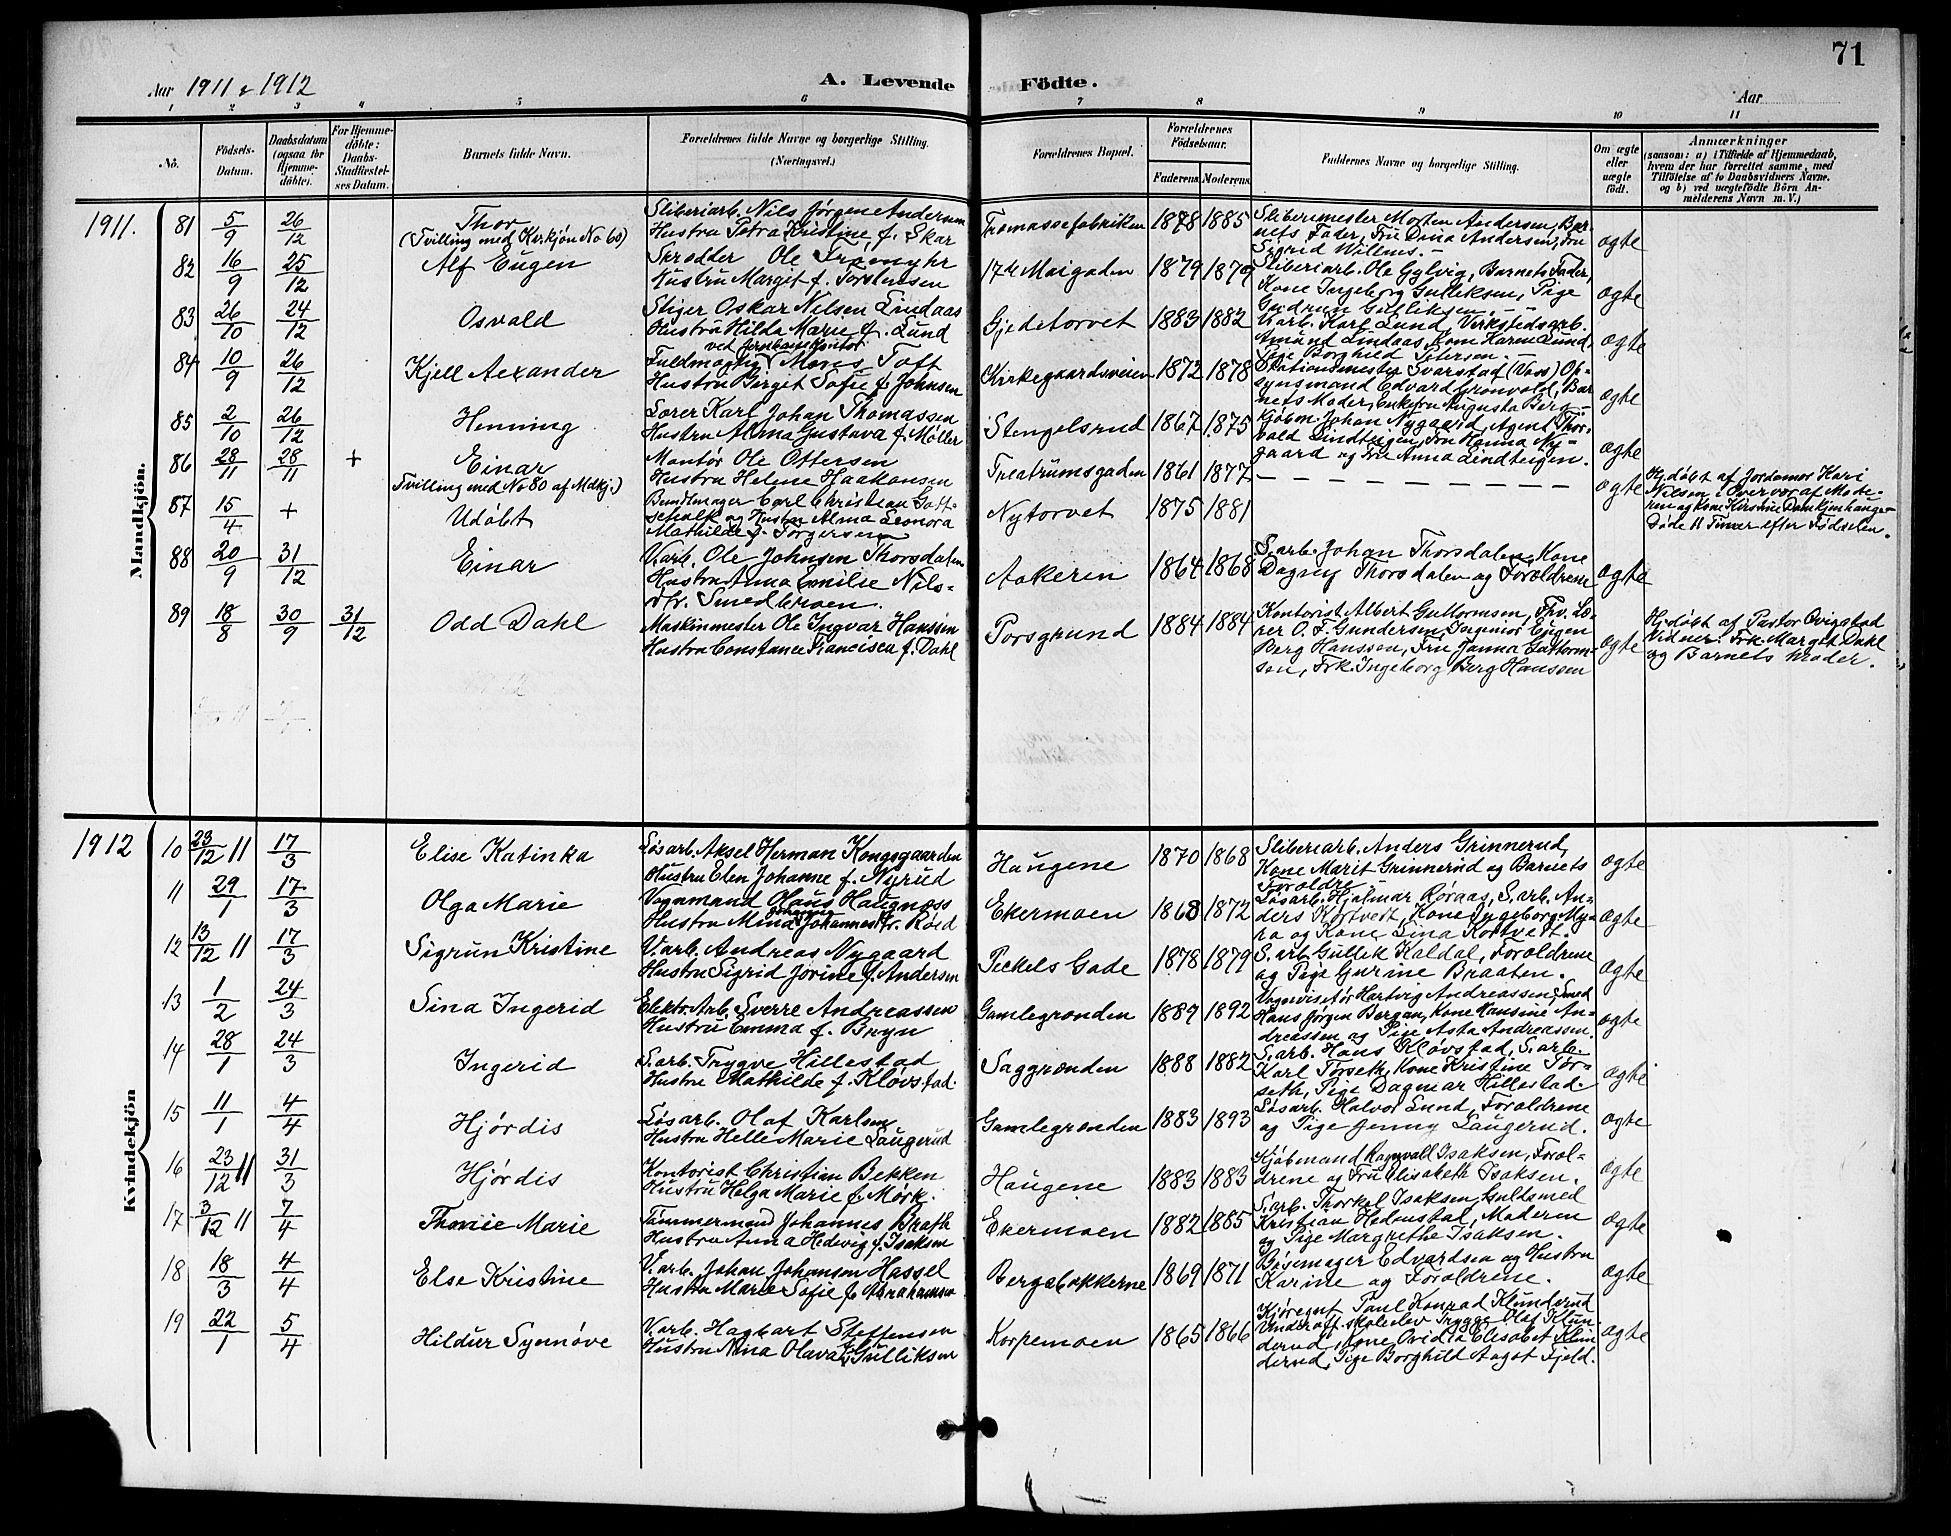 71
Aar 1911 & 1912
A. Levende Födte.
Aar
1 2 3 4 5 6 7 8 9 10 11
No.
Födsels-Datum.
Daabsdatum (ogsaa for Hjemme-döbte).
For Hjemme-döbte: Daabs-Stadfæstel-ses Datum.
Barnets fulde Navn.
Forældrenes fulde Navne og borgerlige Stilling. (Næringsvei.)
Forældrenes Bopæl.
Forældrenes Födselsaar.
Faderens Moderens
Faddernes Navne og borgerlige Stilling.
Om ægte eller uægte födt.
Anmærkninger
(saasom: a) i Tilfælde af Hjemmedaab, hvem der har forrettet samme, med Tilföielse af to Daabsvidners Navne, og b) ved uægtefödte Börn An-melderens Navn m. V.)
1911.
Mandkjön.
81 5/9 26/12 Thor (Tvilling med Kvkjön No 60)
Sliberiarb. Nils Jørgen Andersen
Hustru Petra Kristine f. Skar
Træmassefabriken 1878 1885
Slibermester Morten Andersen, Bar-
nets Fader, Fru Dina Andersen, Fru
Sigrid Willems.
ægte
82 16/9 25/12 Alf Eugen
Skrædder Ole
Hustru Margit f. Torstensen
17de Maigaden 1879 1879
Sliberiarb. Ole Gylvig, Barnets Fader,
Kone Ingeborg Gulliksen, Pige
Gudrun Gulliksen.
ægte
83 26/10 24/12 Osvald
Stiger Oskar Nilsen Lindaas
Hustru Hilda Marie f. Lund
Gjedetorvet 1883 1882
V.arb. Karl Lund, Verkstedsarb.
Amund Lindaas, Kone Karen Lund,
Pige Borghild Petersen.
ægte
84 10/9 26/12 Kjell Alexander
ved Jernbanekontor
Fuldmægtig Mons Toft
Hustru Birgit Sofie f. Johnsen
Kirkegaardsveien 1872 1878
Stationsmester Svarstad (Voss) Op-
synsmand Edvard Grønvold, Bar-
nets Moder, Enkefru Augusta Berg
ægte
85 2/10 26/12 Henning
Lærer Karl Johan Thomassen
Hustru Alma Gustava f. Møller
Stengelsrud 1867 1875
Kjøbm. Johan Nygaard, Agent Thor-
vald Lindteigen, Fru Hanna Ny-
gaard og Fru Anna Lindteigen.
ægte
86 28/11 28/11 + Einar
Tvilling med No 80 af Mdkj.)
Montør Ole Ottersen
Hustru Helene Haakansen
Teatrumsgaden 1861 1877
— — — — — — —
ægte
Hjdøbt af Jordemor Kari
Nilsen i Overvær af Mode-
ren og Kone Kirstine Damkjenhaugen
Døde 11 Timer efter Fødselen.
87 15/4 + Udøbt
Bundtmager Carl Christian Gott-
schalk og Hustru Alma Leonora
Mathilde f. Torgersen
Nytorvet 1875 1881
88 20/9 31/12 Einar
V.arb. Ole Johnsen Thorsdalen
Hustru Anna Emilie Nils-
dtr. Smedbroen.
Aakeren 1864 1868
S.arb. Johan Thorsdalen, Kone
Dagny Thorsdalen og Forældrene
ægte
89 18/8 30/9 31/12 Odd Dahl
Maskinmester Ole Ingvar Hanssen
Hustru Constance Francisca f. Dahl
Porsgrund 1884 1884
Kontorist Albert Guttormsen, Fhv. Læ-
rer O. F. Gundersen, Ingeniør Eugen
Berg Hanssen, Fru Janna Guttorm-
sen, Frk. Ingeborg Berg Hanssen
ægte
Hjdøbt af Pastor Qvigstad
Vidner: Frk. Margit Dahl
og Barnets Moder.
1912
Kvindekjön
10 23/12 11 17/3 Elise Katinka
Løsarb. Aksel Herman Kongsgaarden
Hustru Elen Johanne f. Nyrud
Haugene 1870 1868
Sliberiarb. Anders Grinnerud,
Kone Marit Grinnerud og Barnets
Forældre.
ægte
11 29/1 17/3 Olga Marie
Vognmand Hans Haugnæss
Hustru Mina Johannesdtr. Røed
Ekermoen 1863 1872
Løsarb. Hjalmar Røraas, S.arb. An-
ders Kortvedt, Kone Ingeborg My-
ra og Kone Lina Kortvedt.
ægte
12 13/12 11 17/3 Sigrun Kristine
V.arb. Andreas Nygaard
Hustru Sigrid Jorine f. Andersen
Peckels Gade 1878 1879
S.arb. Gullik Kaldal, Forældrene
og Pige Gurine Braaten.
ægte
13 1/2 24/3 Sina Ingerid
Elektr. Arb. Sverre Andreassen
Hustru Emma f. Bryn
Gamlegrænden 1889 1892
Vognvisitør Hartvig Andreassen, Smed
Hans Jørgen Bergan, Kone Hansine An-
dreassen og Pige Asta Andreassen.
ægte
14 28/1 24/3 Ingerid
S.arb. Trygve Hillestad
Hustru Mathilde f. Kløvstad.
Saggrænden 1888 1882
S.arb. Hans Kløvstad, S.arb.
Karl Torseth, Kone Kristine Tor-
seth, Pige Dagmar Hillestad.
ægte
15 11/1 4/4 Hjørdis
Løsarb. Olaf Karlsen
Hustru Helle Marie Laugerud
Gamlegrænden 1883 1893
Løsarb. Halvor Lund, Forældrene
og Pige Jenny Laugerud.
ægte
16 23/12 11 31/3 Hjørdis
Kontorist Christian Bekken
Hustru Helga Marie f. Mørk.
Haugene 1883 1883
Kjøbmand Ragnvald Isaksen, Foræl-
drene og Fru Elisabeth Isaksen.
ægte
17 3/12 11 7/4 Thonie Marie
Tømmermand Johannes Brath
Hustru Anna Hedevig f. Isaksen
Ekermoen 1882 1885
S.arb. Thorkel Isaksen, Guldsmed
Kristian Hedenstad, Moderen
og Pige Margrethe Isaksen.
ægte
18 18/3 4/4 Else Kristine
V.arb. Johan Johansen Hassel
Hustru Marie Sofie f. Abrahamsen
Bergsbakkerne 1869 1871
Bøsemager Edvardsen og Hustru
Karine og Forældrene.
ægte
19 22/1 5/4 Hildur Synnøve
V.arb. Hagbart Steffensen
Hustru Nina Olava f. Gulliksen
Korpemoen 1865 1866
Kjøregut Paul Konrad Klunderud
Underoff.skoleelev Trygge Olaf Klun-
derud, Kone Ovidia Elisabet Klun-
derud, Pige Borghild Aagot Fjeld.
ægte